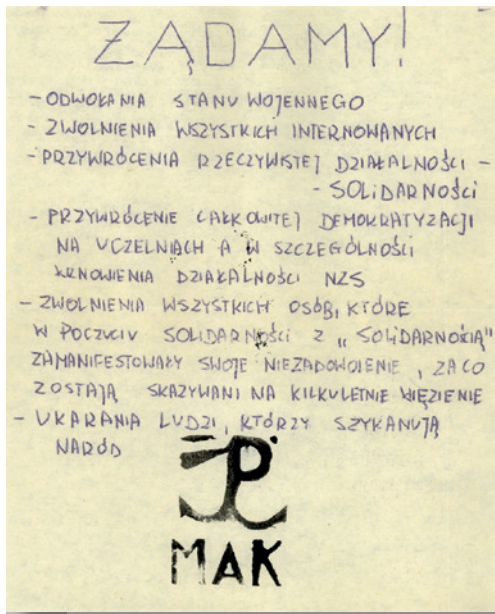 ŻĄDAMY!
- ODWOŁANIA STANU WOJENNEGO
- ZWOLNIENIA WSZYSTKICH INTERNOWANYCH
- PRZYWRÓCENIA RZECZYWISTEJ DZIAŁALNOŚCI -
- SOLiDARNOŚCi
- PRZYWRÓCENIE CAŁKOWITEJ DEMOKRATYZACJI
NA UCZELNIACH A W SZCZEGÓLNOŚCi
WZNOWIENIA DZIAŁALNOŚCi NZS
- ZWOLNIENIA WSZYSTKICH OSÓB, KTÓRE
W POCZUCIU SOLIDARNOŚCi Z „SOLiDARNOŚCIĄ"
ZAMANIFESTOWAŁY SWOJE NIEZADOWOLENIE, ZA CO
ZOSTAJĄ SKAZYWANI NA KILKULETNIE WIĘZIENIE
- UKARANIA LUDZI, KTÓRZY SZYKANUJĄ
NARÓD
MAK